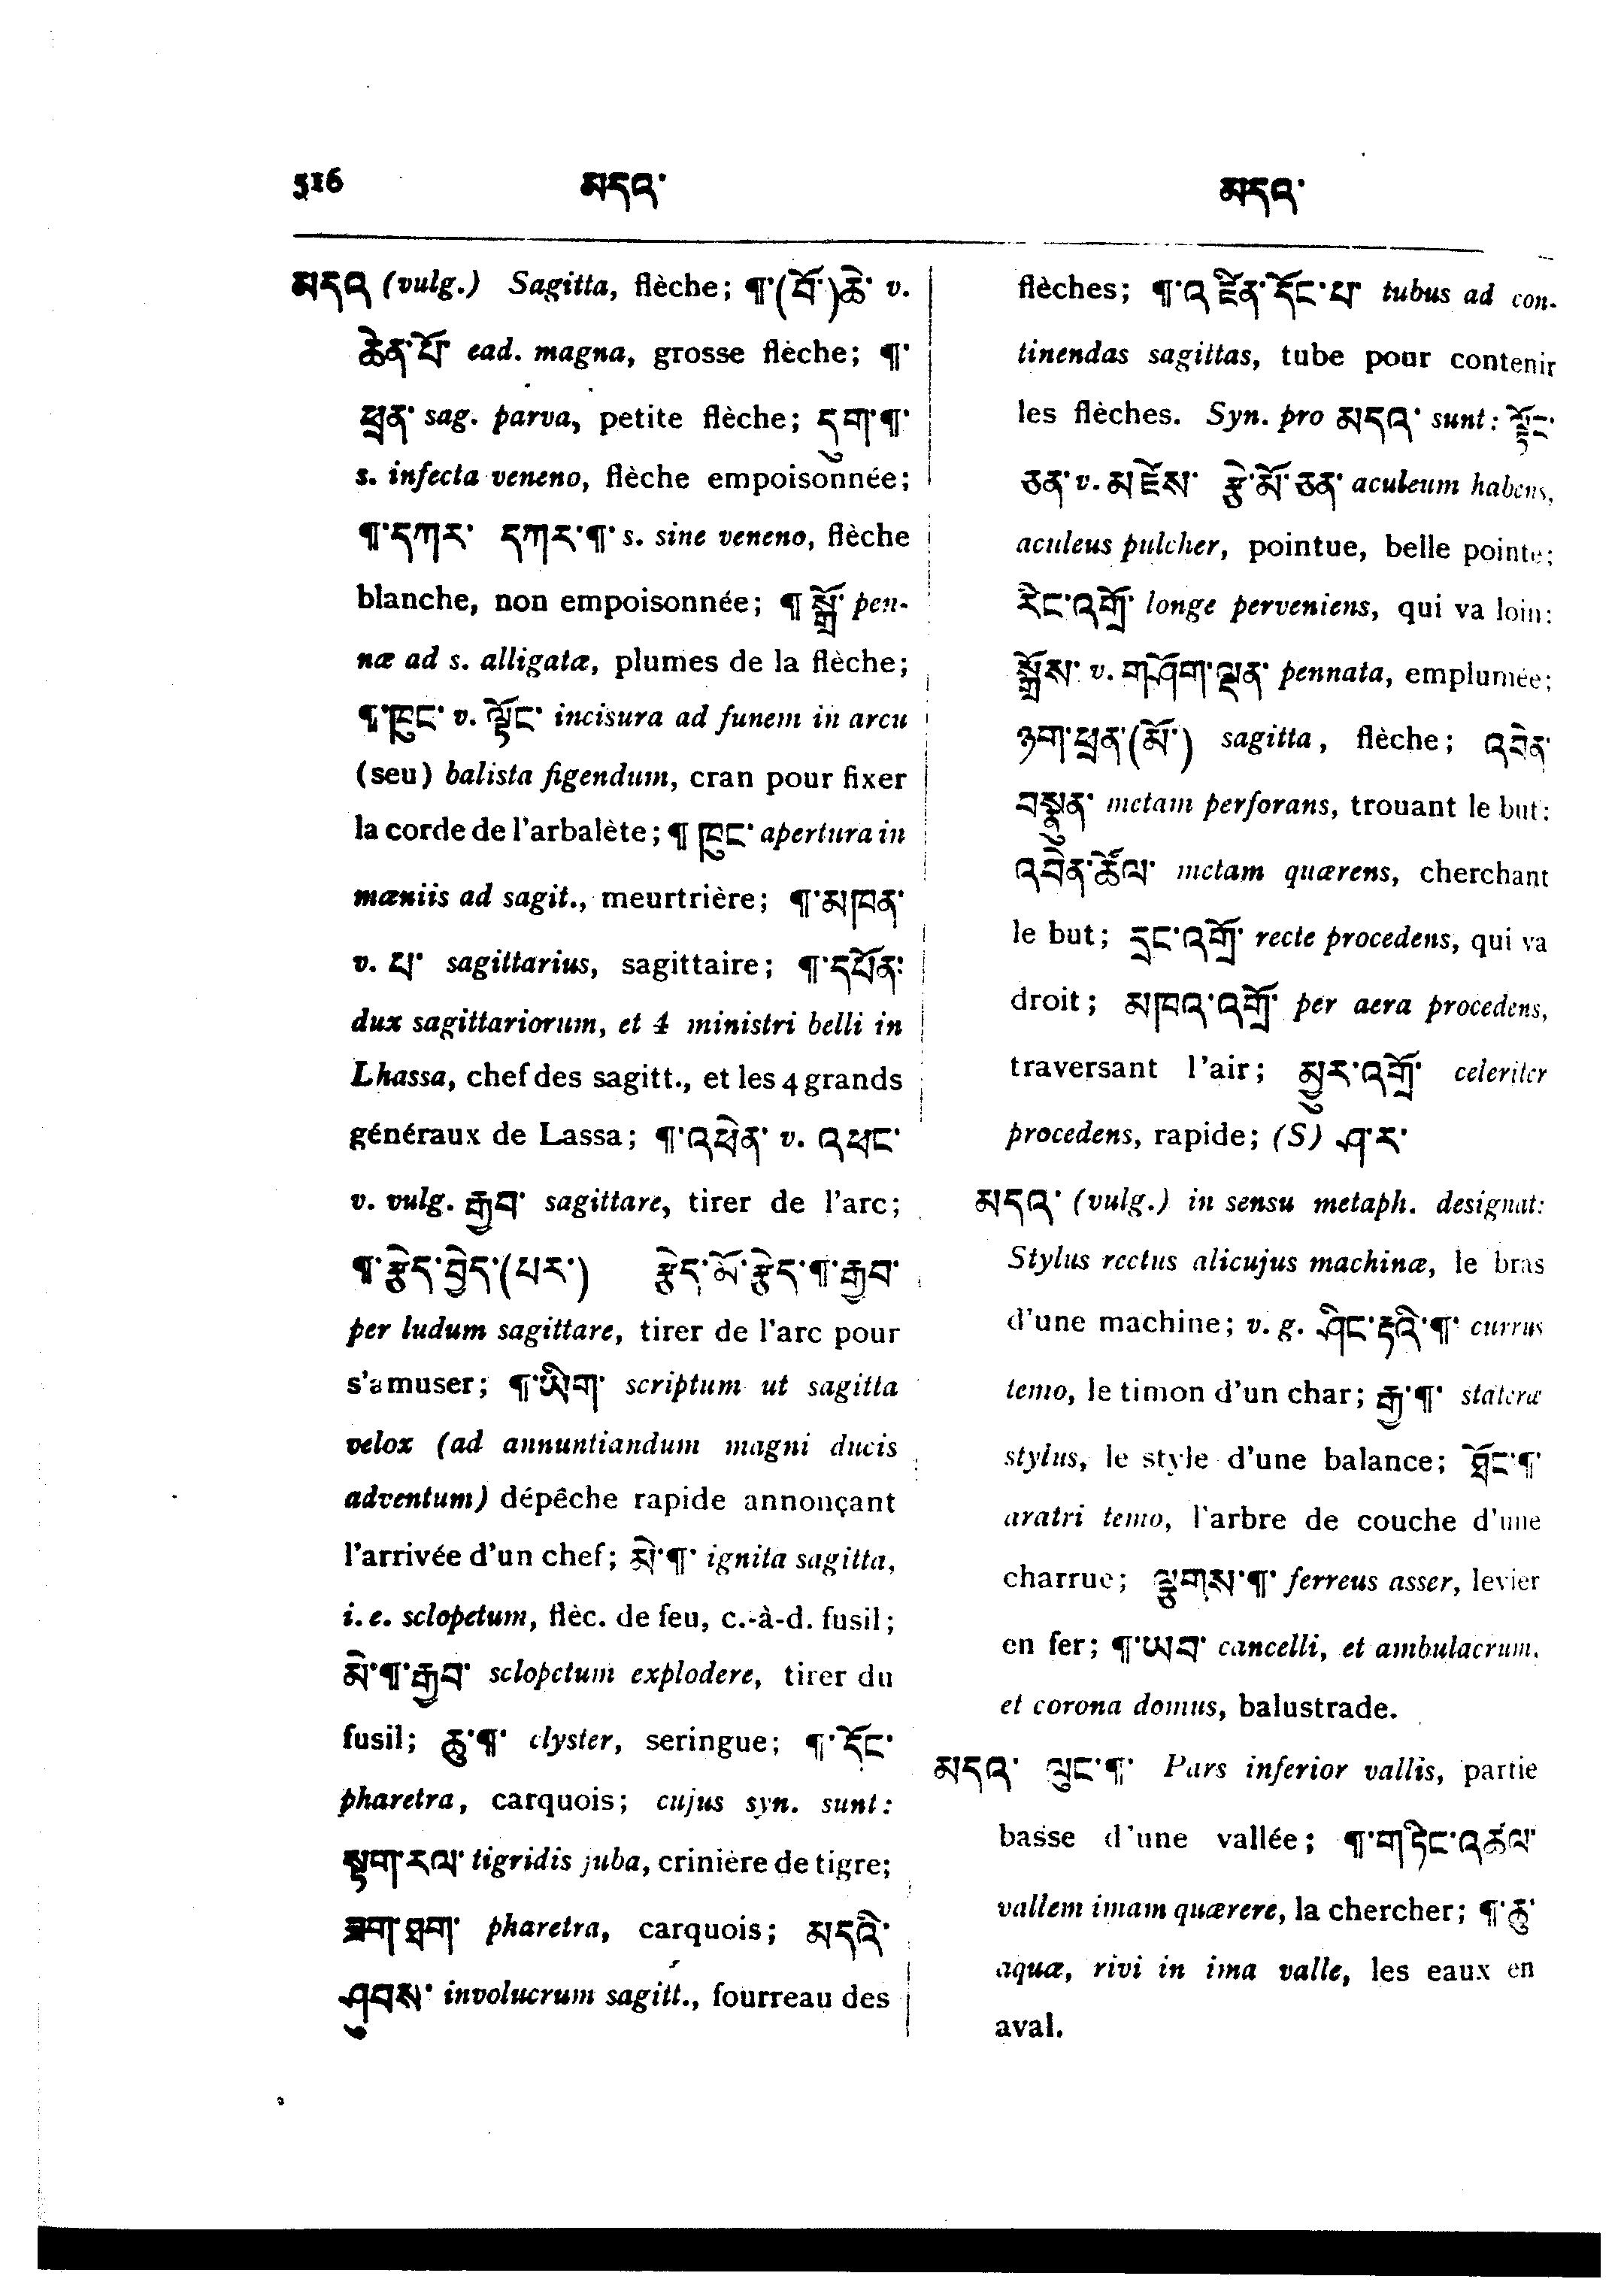 516 མདའ་ མདའ་
མདའ (vulg.) Sagitta, flèche; ¶་(བོ་)ཆེ་ v.
ཆེན་པོ་ ead. magna, grosse flèche; ¶་
ཕྲན་ sag. parva, petite flèche; དུག་¶་
s. infecta veneno, flèche empoisonnée;
¶་དཀར་ དཀར་¶་ s. sine veneno, flèche
blanche, non empoisonnée; ¶ སྒྲོ་ pen-
næ ad s. alligatæ, plumes de la flèche;
¶་ཁུང་ v. ལྟོང་ incisura ad funem in arcu
(seu) balista figendum, cran pour fixer
la corde de l'arbalète; ¶ ཁུང་ apertura in
mæniis ad sagit., meurtrière; ¶་མཁན་
v. པ་ sagittarius, sagittaire; ¶་དཔོན་
dux sagittariorum, et 4 ministri belli in
Lhassa, chef des sagitt., et les 4 grands
généraux de Lassa; ¶་འཕེན་ v. འཕང་
v. vulg. རྒྱབ་ sagittare, tirer de l'arc;
¶་རྩེད་བྱེད་(པར་) རྩེད་མོ་རྩེད་¶་རྒྱབ་
per ludum sagittare, tirer de l'arc pour
s'amuser; ¶་ཡིག་ scriptum ut sagitta
velox (ad annuntiandum magni ducis
adventum) dépêche rapide annonçant
l'arrivée d'un chef; མེ་¶་ ignita sagitta,
i. e. sclopetum, flèc. de feu, c.-à-d. fusil;
མེ་¶་རྒྱབ་ sclopetum explodere, tirer du
fusil; ཆུ་¶་ clyster, seringue; ¶་དོང་
pharetra, carquois; cujus syn. sunt:
སྟག་རལ་ tigridis juba, crinière de tigre;
ཟག་ཐག་ pharetra, carquois; མདའི་
ཤུབས་ involucrum sagitt., fourreau des
flèches; ¶་འཛིན་དོང་པ་ tubus ad con-
tinendas sagittas, tube pour contenir
les flèches. Syn. pro མདའ་ sunt:
ཅན་ v. མཛེས་ རྩེ་མོ་ཅན་ aculeum habens,
aculeus pulcher, pointue, belle pointe;
རིང་འགྲོ་ longe perveniens, qui va loin;
སྒྲོས་ v. གཤོག་ལྡན་ pennata, emplumée;
ཉག་ཕྲན་(མོ་) sagitta, flèche; འབེན་
བསྣུན་ metam perforans, trouant le but;
འབེན་ཚོལ་ metam quærens, cherchant
le but; དྲང་འགྲོ་ recte procedens, qui va
droit; མཁའ་འགྲོ་ per aera procedens,
traversant l'air; མྱུར་འགྲོ་ celeriter
procedens, rapide; (S) ཤ་ར་
མདའ་ (vulg.) in sensu metaph. designat:
Stylus rectus alicujus machinæ, le bras
d'une machine; v. g. ཤིང་རྟའི་¶་ currus
temo, le timon d'un char; རྒྱ་¶་ stateræ
stylus, le style d'une balance; ཐོང་¶་
aratri temo, l'arbre de couche d'une
charrue; ལྕགས་¶་ ferreus asser, levier
en fer; ¶་ཡབ་ cancelli, et ambulacrum,
et corona domus, balustrade.
མདའ་ ལུང་¶་ Pars inferior vallis, partie
basse d'une vallée; ¶་གཏིང་འཚལ་
vallem imam quærere, la chercher; ¶་ཆུ་
aquæ, rivi in ima valle, les eaux en
aval.